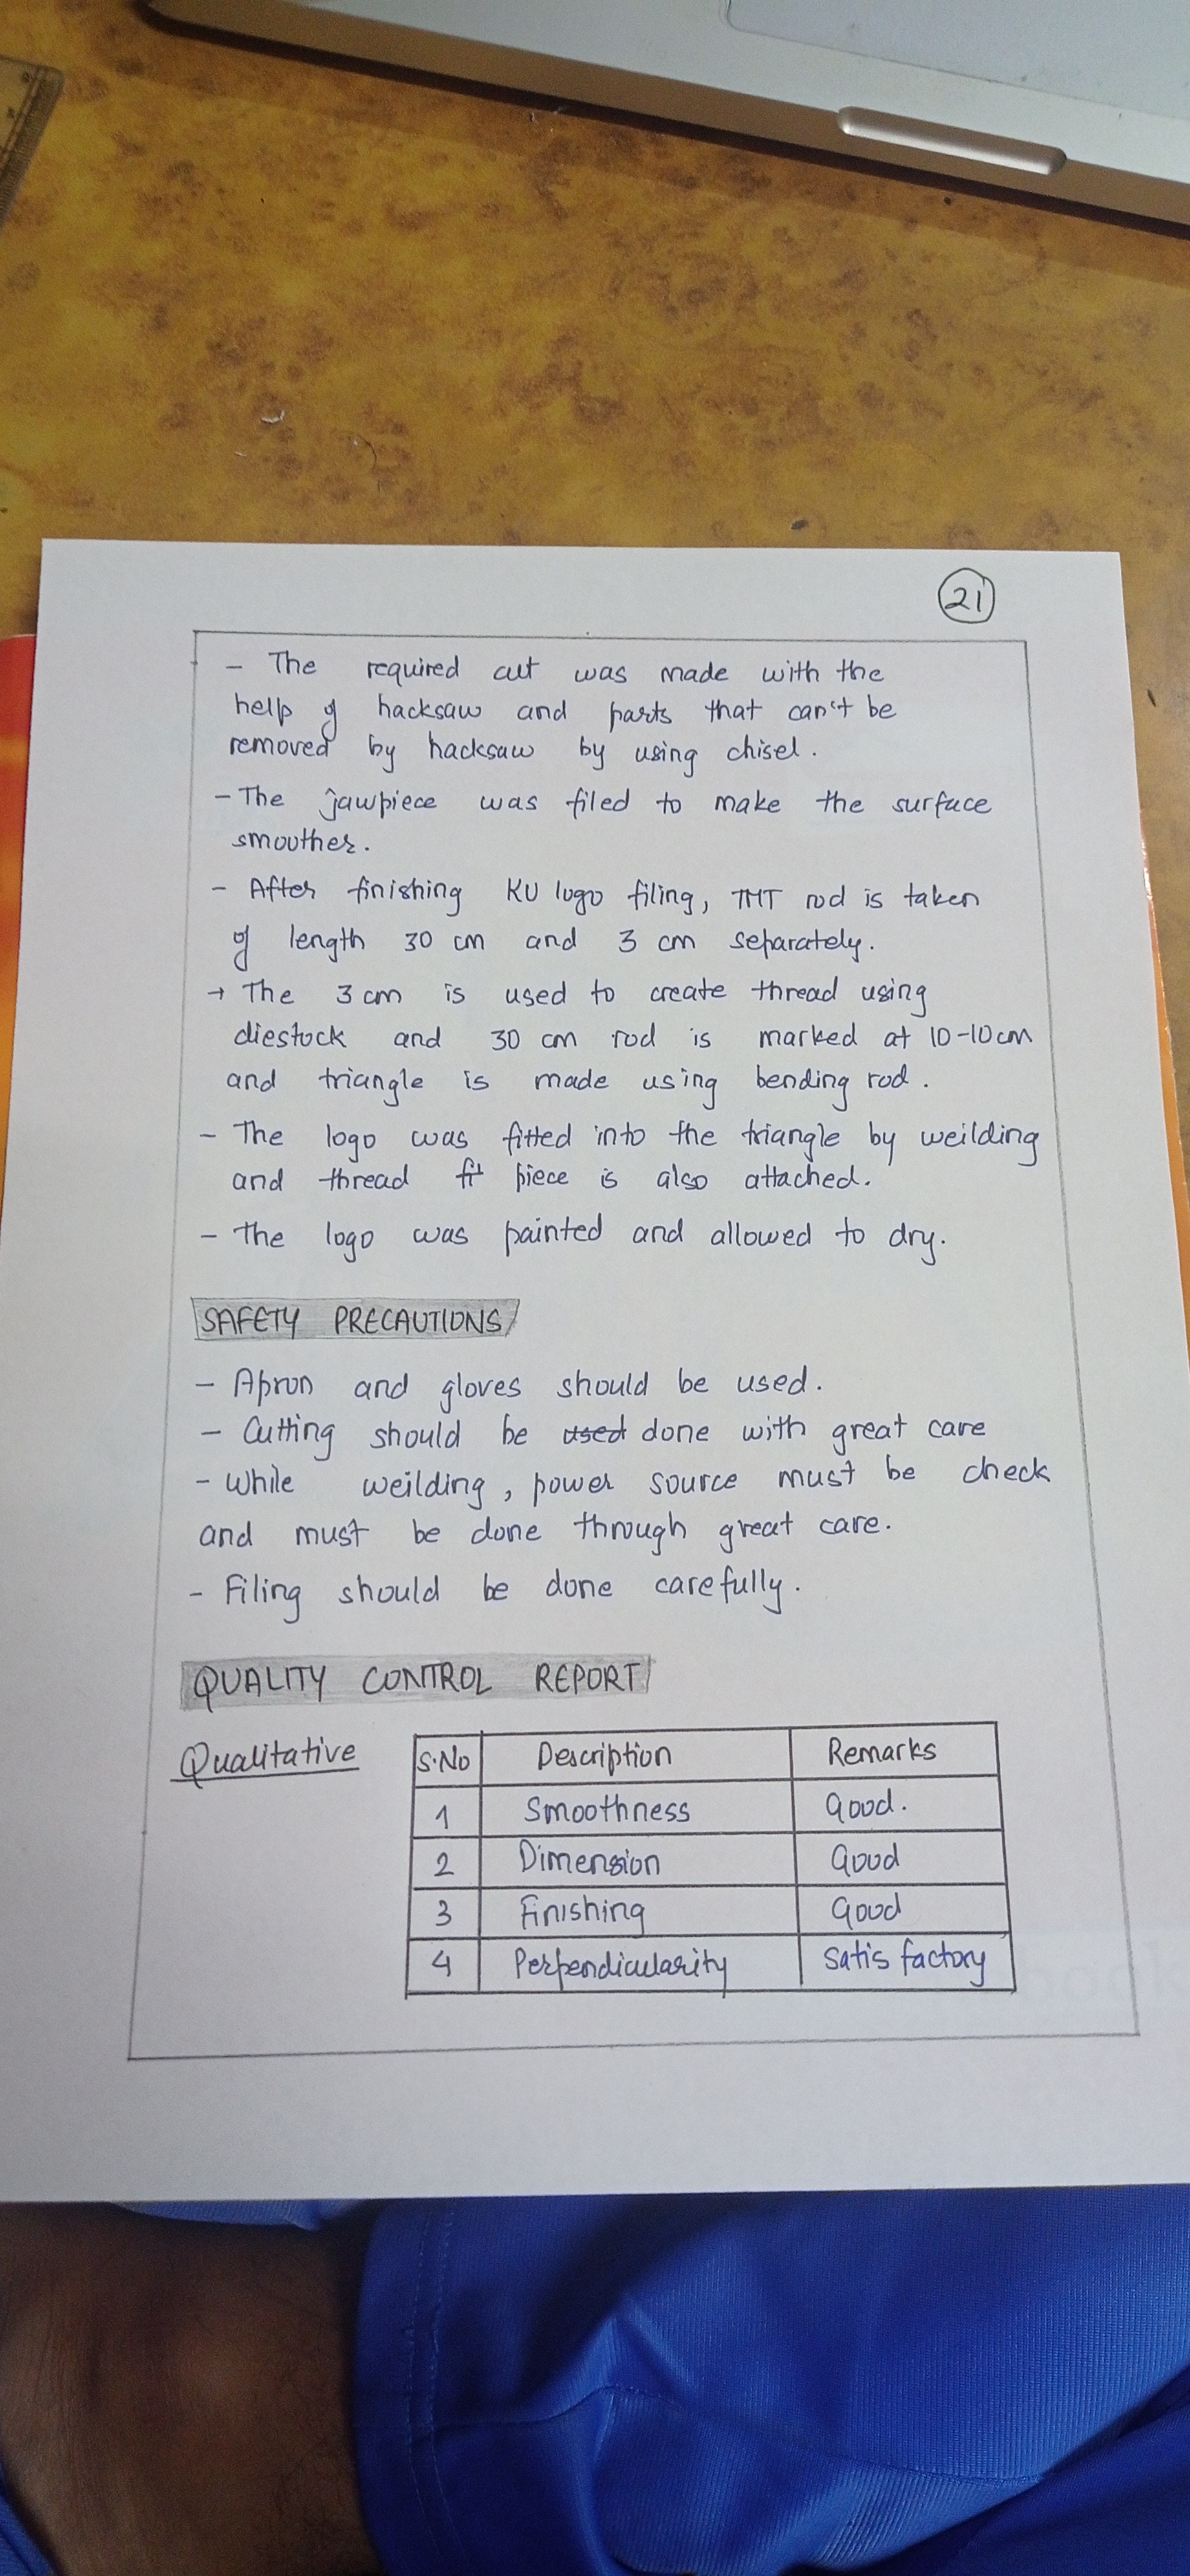 21
- The required cut was made with the
help of hacksaw and parts that can't be
removed by hacksaw by using chisel.
- The jawpiece was filed to make the surface
smoother.
- After finishing KU logo filing, TMT rod is taken
of length 30 cm and 3 cm separately.
→ The 3 cm is used to create thread using
diestock and 30 cm rod is marked at 10-10 cm
and triangle is made using bending rod.
- The logo was fitted into the triangle by weilding
and thread piece is also attached.
- The logo was painted and allowed to dry.
SAFETY PRECAUTIONS
- Apron and gloves should be used.
- Cutting should be used done with great care
- While weilding, power source must be check
and must be done through great care.
- Filing should be done carefully.
QUALITY CONTROL REPORT
Qualitative
S.No Description Remarks
1 Smoothness Good.
2 Dimension Good
3 Finishing Good
4 Perpendicularity Satisfactory